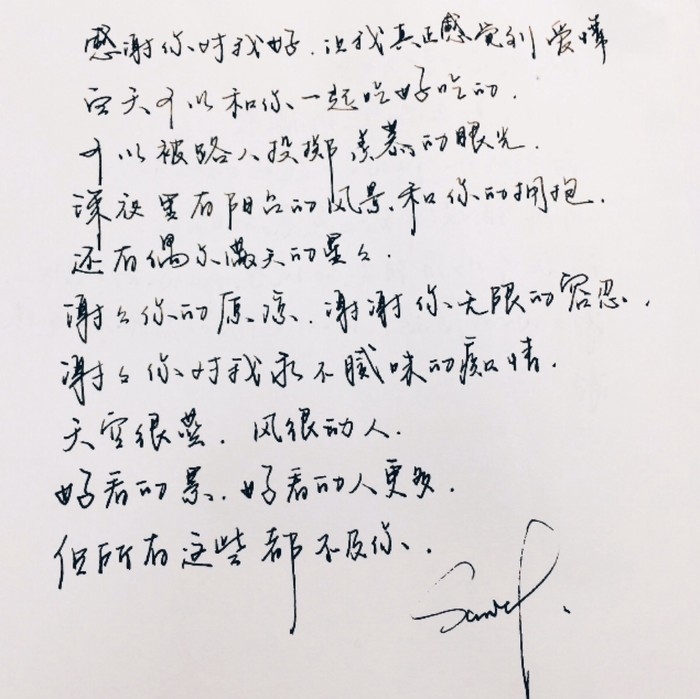 感谢你对我好.让我真正感觉到爱哗
白天可以和你一起吃好吃的.
可以被路人投掷羡慕的眼光.
深夜里有阳台的风景.和你的拥抱.
还有偶尔满天的星々.
谢々你的原谅.谢谢你无限的容忍.
谢々你对我永不腻味的痴情.
天空很蓝.风很动人.
好看的景.好看的人更多.
但所有这些都不及你.